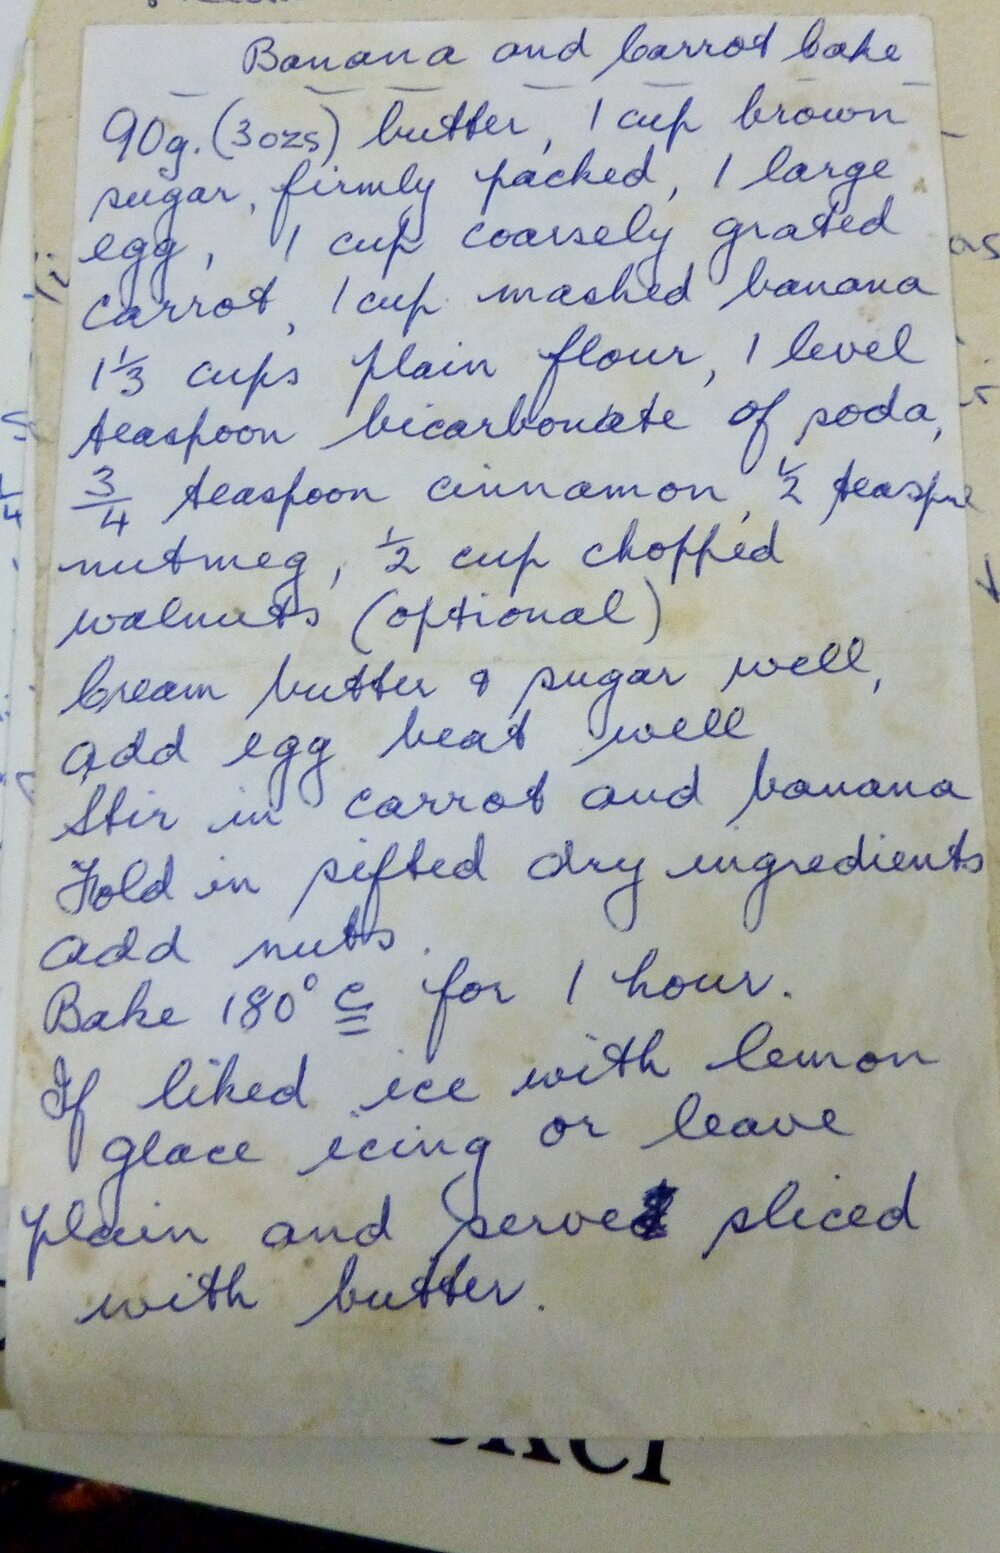 Banana and Carrot bake
90g. (3ozs) butter, 1 cup brown
sugar, firmly packed, 1 large
egg, 1 cup coarsely grated
carrot, 1 cup mashed banana
1⅓ cups plain flour, 1 level
teaspoon bicarbonate of soda,
3/4 teaspoon cinnamon, ½ teaspne
nutmeg, ½ cup chopped
walnuts (optional)
Cream butter & sugar well,
add egg beat well
Stir in carrot and banana
Fold in sifted dry ingredients
add nuts.
Bake 180° C for 1 hour.
If liked ice with lemon
glace icing or leave
plain and serve sliced
with butter.